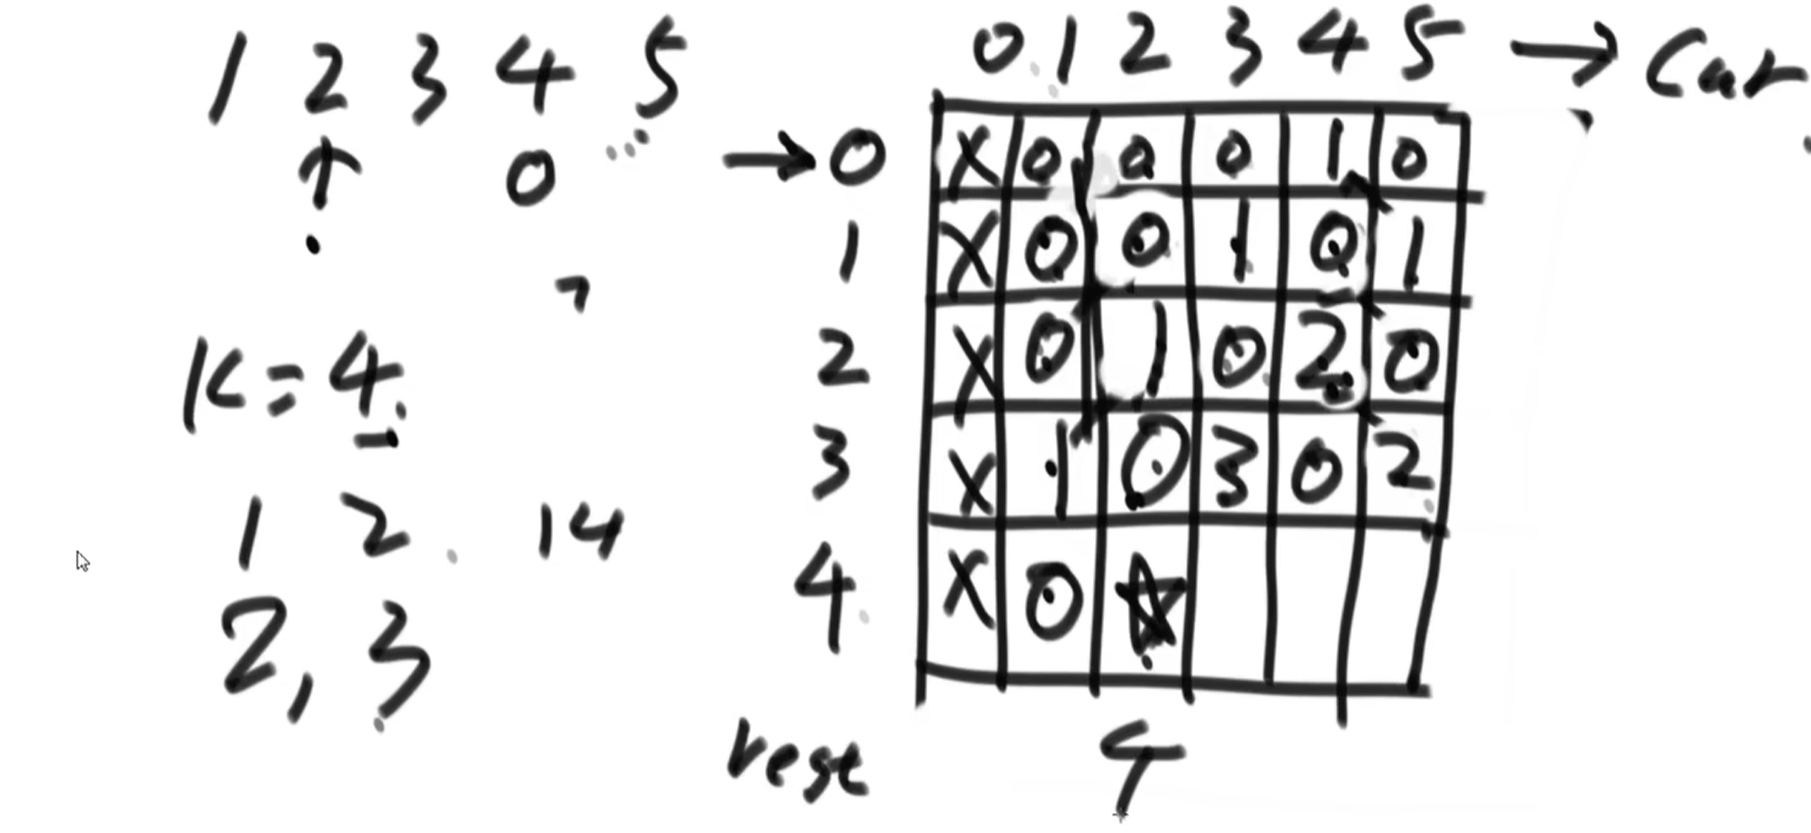 1 2 3 4 5
↑ 0
K=4
1 2 14
2, 3
0 1 2 3 4 5 → Cur
→ 0 X 0 0 0 1 0
1 X 0 0 1 0 1
2 X 0 1 0 2 0
3 X 1 0 3 0 2
4 X 0 ☆
rest 4